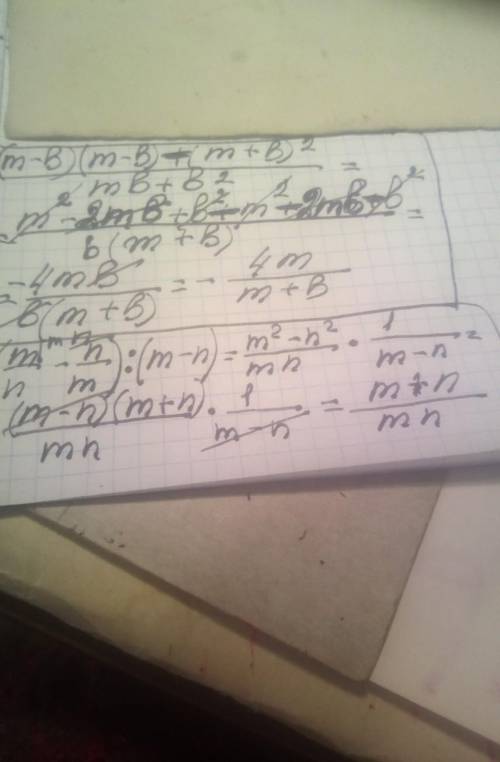 (m-B)(m-B)-(m+B)² / mB+B² =
m²-2mB+B²-m²-2mB-B² / B(m+B) =
= -4mB / B(m+B) = - 4m / m+B
(m/n - n/m) : (m-n) = m²-n² / mn · 1 / m-n =
(m-n)(m+n) / mn · 1 / m-n = m+n / mn